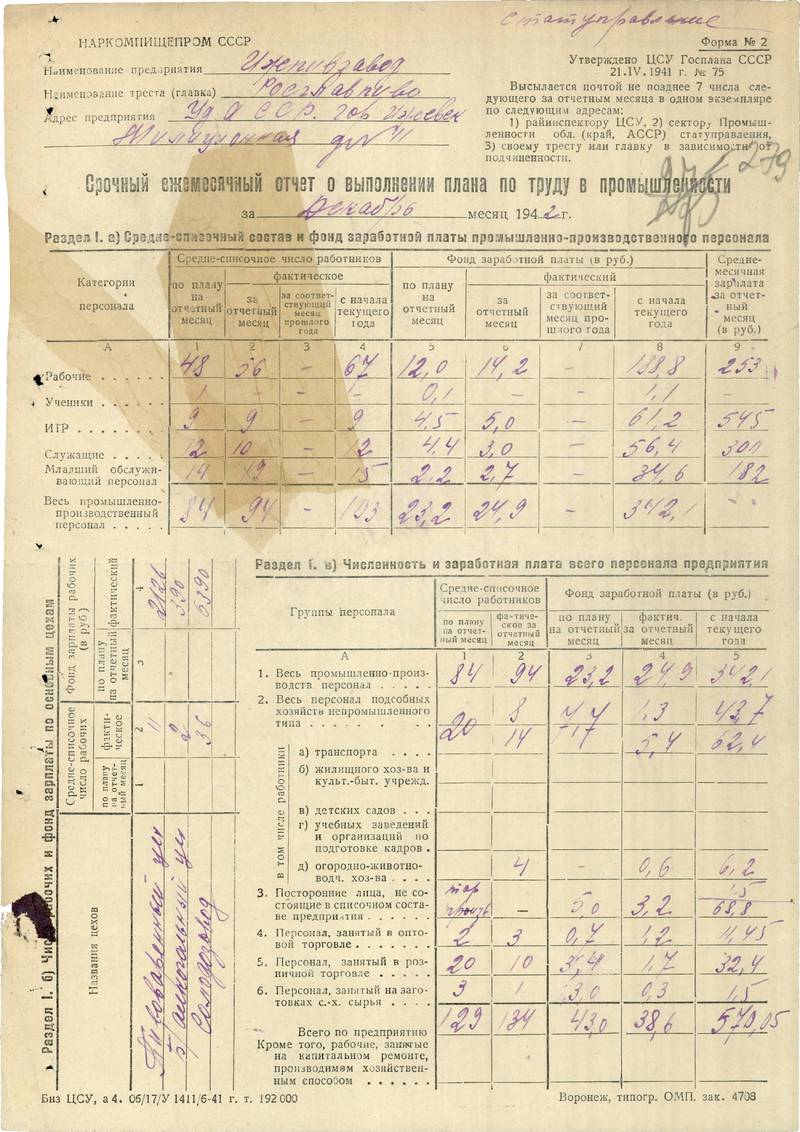 Статуправление
НАРКОМПИЩЕПРОМ СССР
Форма № 2
Наименование предприятия Ижпивзавод
Наименование треста (главка) Росглавпиво
Адрес предприятия УдАССР. гор Ижевск
Милиционная
Утверждено ЦСУ Госплана СССР
21.IV. 1941 г. № 75
Высылается почтой не позднее 7 числа сле-
дующего за отчетным месяца в одном экземпляре
по следующим адресам:
1) райинспектору ЦСУ, 2) сектору Промыш-
ленности обл. (край, АССР) статуправления,
3) своему тресту или главку в зависимости от
подчиненности.
279
Срочный ежемесячный отчет о выполнении плана по труду в промышленности
за Декабрь месяц 1942 г.
Раздел I. а) Средне-списочный состав и фонд заработной платы промышленно-производственного персонала
Категории персонала
Средне-списочное число работников
Фонд заработной платы (в руб.)
Средне-месячная зарплата за отчетный месяц (в руб.)
по плану на отчетный месяц
фактическое
за отчетный месяц
за соответствующий месяц прошлого года
с начала текущего года
по плану на отчетный месяц
фактический
за отчетный месяц
за соответствующий месяц прошлого года
с начала текущего года
А 1 2 3 4 5 6 7 8 9
Рабочие . . . . . . 48 56 – 67 12,0 14,2 – 188,8 253
Ученики . . . . . . 1 – – 1 0,1 – 1,1
ИТР . . . . . . . . 9 9 – 9 4,5 5,0 – 61,2 545
Служащие . . . . . 12 10 – 12 4,4 3,0 – 56,4 301
Младший обслужи-
вающий персонал 14 19 – 15 2,2 2,7 – 34,6 182
Весь промышленно-
производственный
персонал . . . . . 84 94 – 103 23,2 24,9 – 342,1 –
Раздел I. б) Число рабочих и фонд зарплаты по основным цехам
Названия цехов
Средне-списочное число рабочих
по плану на отчетный месяц
фактическое
Фонд зарплаты рабочих (в руб.)
по плану на отчетный месяц
фактический
1 2 3 4
Пивоваренный цех 11 2126
Б/алкогольный цех 2 390
Солодозавод 36 6390
Раздел I. в) Численность и заработная плата всего персонала предприятия
Группы персонала
Средне-списочное число работников
Фонд заработной платы (в руб.)
по плану на отчетный месяц
фактическое за отчетный месяц
по плану на отчетный месяц
фактич. за отчетный месяц
с начала текущего года
А 1 2 3 4 5
1. Весь промышленно-произ-
водств персонал . . . . . 84 94 23,2 24,9 342,1
2. Весь персонал подсобных
хозяйств непромышленного
типа . . . . . . . . 20 8 7,7 1,3 43,7
14 5,4 62,4
в том числе работники
а) транспорта . . . .
б) жилищного хоз-ва и
культ.-быт. учрежд.
в) детских садов . . .
г) учебных заведений
и организаций по
подготовке кадров .
д) огородно-животно-
водч. хоз-ва . . . . 4 – 0,6 6,2
3. Посторонние лица, не со-
стоящие в списочном соста-
ве предприятия . . . . . . – 5,0 3,2 68,8
1,5
4. Персонал, занятый в опто-
вой торговле . . . . . . . 2 3 0,7 1,2 11,45
5. Персонал, занятый в роз-
ничной торговле . . . . . 20 10 3,4 1,7 32,4
6. Персонал, занятый на заго-
товках с.-х. сырья . . . . 3 1 3,0 0,3 1,5
Всего по предприятию 129 134 43,0 38,6 570,05
Кроме того, рабочие, занятые
на капитальном ремонте,
производимом хозяйствен-
ным способом . . . . . .
Биз ЦСУ, а 4. 06/17/У 1411/6-41 г. т. 192 000
Воронеж, типогр. ОМП, зак. 4708